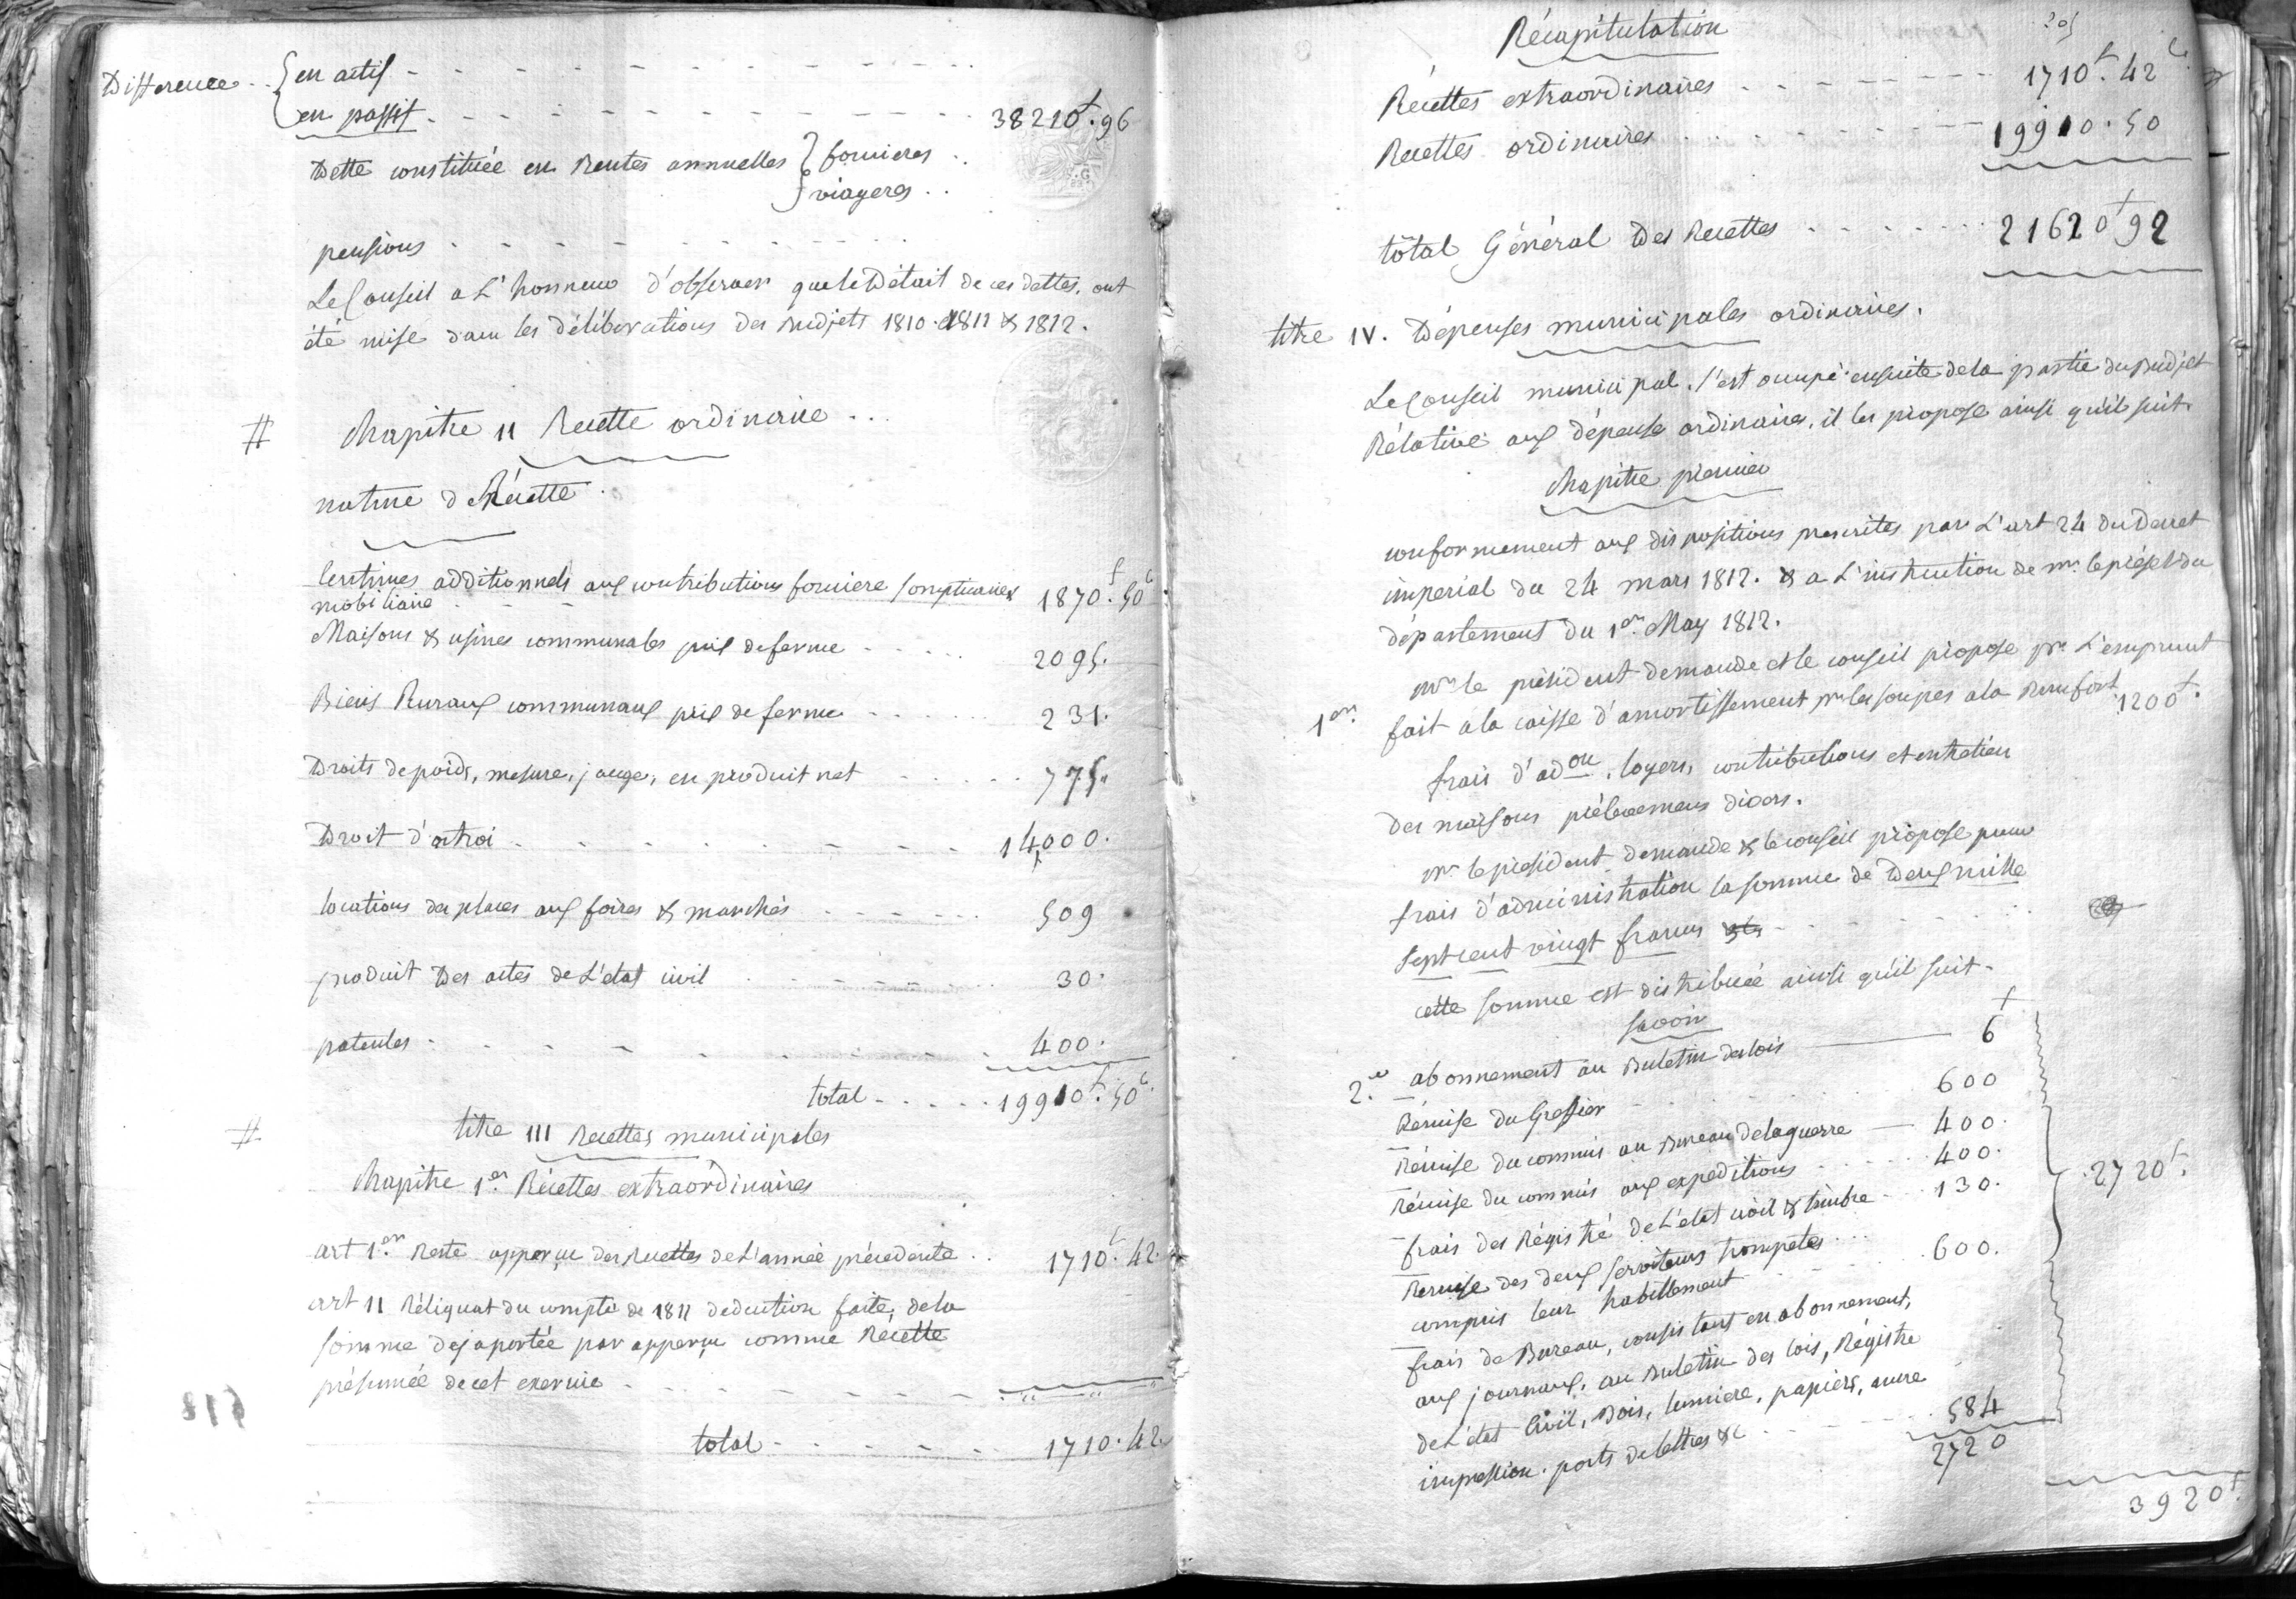 Difference .. { en actif
en passif 38210f.96
Dette constituée en Rentes annuelles } foncieres ..
} viageres ..
pensions
Le Conseil a L'honneur d'observer que le Détail de ces dettes, ont
été mise dans les délibérations des Budjets 1810. 1811 & 1812.
# Chapitre 11 Recette ordinaire ...
nature de Récette
Centimes additionnels aux contributions fonciere somptuaire &
mobiliaire 1870f.50c
Maisons & usines communales prix de ferme 2095.
Biens Ruraux communaux prix de ferme 231.
Droits de poids, mesure, jauge, en produit net 775.
Droit d'octroi 14000.
locations des places aux foires & marchés 509
produit Des actes de L'état civil 30.
patentes 400.
total 19910f.50c
# titre 111 Recettes municipales
Chapitre 1er. Récettes extraordinaires
art 1er. Reste apperçu des Recettes de L'année précedente .. 1710f.42.
art 11 Réliquat du compte de 1811 deduction faite, de la
somme deja portée par apperçu comme Récette
présumée de cet exercice
total 1710.42.
Récapitulation
Récettes extraordinaires 1710f.42c
Recettes ordinaires 19910.50
tôtal Général Des Recettes 21620f92
titre IV. Dépenses municipales ordinaires.
Le Conseil municipal s'est occupé ensuite de la partie du Budjet
Rélative aux dépenses ordinaires, il les propose ainsi qu'il suit.
Chapitre premier
conformement aux dispositions prescrites par L'art 24 du Decret
imperial du 24 mars 1812. & a L'instruction de mr. le préfet du
département du 1er. May 1812.
mr. le président demande et le conseil propose pr. L'emprunt
1er. fait a la caisse d'amortissement pr. les soupes a la Rumfort 1200f.
frais d'adon, loyers, contributions et entretien
des maisons prélevemens divers.
mr. le président demande & le conseil propose pour
frais d'administration la somme de Deux mille
Sept cent vingt francs
cette somme est distribuée ainsi qu'il suit.
Savoir
2.e abonnement au Buletin des lois 6f
Rémise du Greffier 600
Rémise du commis au Bureau de la guerre 400.
Rémise du commis aux expeditions 400.
frais des Régistré de L'état civil & timbre 130. 2720f.
Remise des deux serviteurs trompetes ...
compris leur habillement 600.
frais de Bureau, consistant en abonnement,
aux journaux, au Buletin des lois, Régistre
de L'état Civil, Bois, lumiere, papiers, ancre
impression, ports de lettres &c 584
2720
3920f.